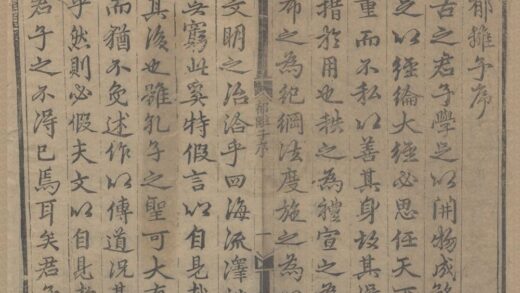 郁離子序
古之君子學足以開物成務
之以經綸大經必思任天下
重而不私以善其身故其得
措於用也秩之為禮宣之為
布之為紀綱法度施之為
郁離子序 一
文明之治洽乎四海流澤
無窮此奚特假言以自見哉
其後也雖孔子之聖可大有
而猶不免述作以傳道況其
乎然則必假夫文以自見故
君子之不得已焉耳矣君子